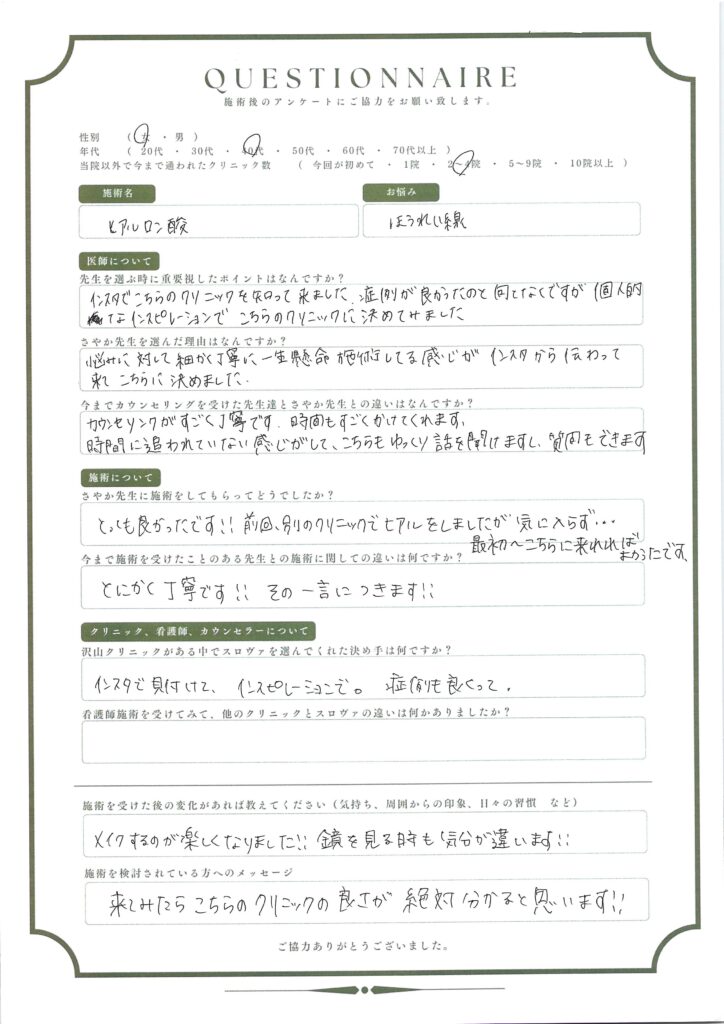 QUESTIONNAIRE
施術後のアンケートにご協力をお願い致します。
性別 ( 女 ・ 男 )
年代 ( 20代 ・ 30代 ・ 40代 ・ 50代 ・ 60代 ・ 70代以上 )
当院以外で今まで通われたクリニック数 ( 今回が初めて ・ 1院 ・ 2～4院 ・ 5～9院 ・ 10院以上 )
施術名
お悩み
ヒアルロン酸
ほうれい線
医師について
先生を選ぶ時に重要視したポイントはなんですか？
インスタでこちらのクリニックを知って来ました。症例が良かったのと何となくですが個人的
なインスピレーションでこちらのクリニックに決めてみました
さやか先生を選んだ理由はなんですか？
悩みに対して細かく丁寧に一生懸命施術してる感じがインスタから伝わって
来てこちらに決めました。
今までカウンセリングを受けた先生達とさやか先生との違いはなんですか？
カウンセリングがすごく丁寧です。時間もすごくかけてくれます。
時間に追われていない感じがして、こちらもゆっくり話を聞けますし、質問もできます
施術について
さやか先生に施術をしてもらってどうでしたか？
とっても良かったです!! 前回、別のクリニックでヒアルをしましたが気に入らず…
最初～こちらに来れれば
よかったです。
今まで施術を受けたことのある先生との施術に関しての違いは何ですか？
とにかく丁寧です!! その一言につきます!!
クリニック、看護師、カウンセラーについて
沢山クリニックがある中でスロヴァを選んでくれた決め手は何ですか？
インスタで見付けて、インスピレーションで。症例も良くって。
看護師施術を受けてみて、他のクリニックとスロヴァの違いは何かありましたか？
施術を受けた後の変化があれば教えてください（気持ち、周囲からの印象、日々の習慣 など）
メイクするのが楽しくなりました!! 鏡を見る時も気分が違います!!
施術を検討されている方へのメッセージ
来てみたらこちらのクリニックの良さが絶対分かると思います!!
ご協力ありがとうございました。